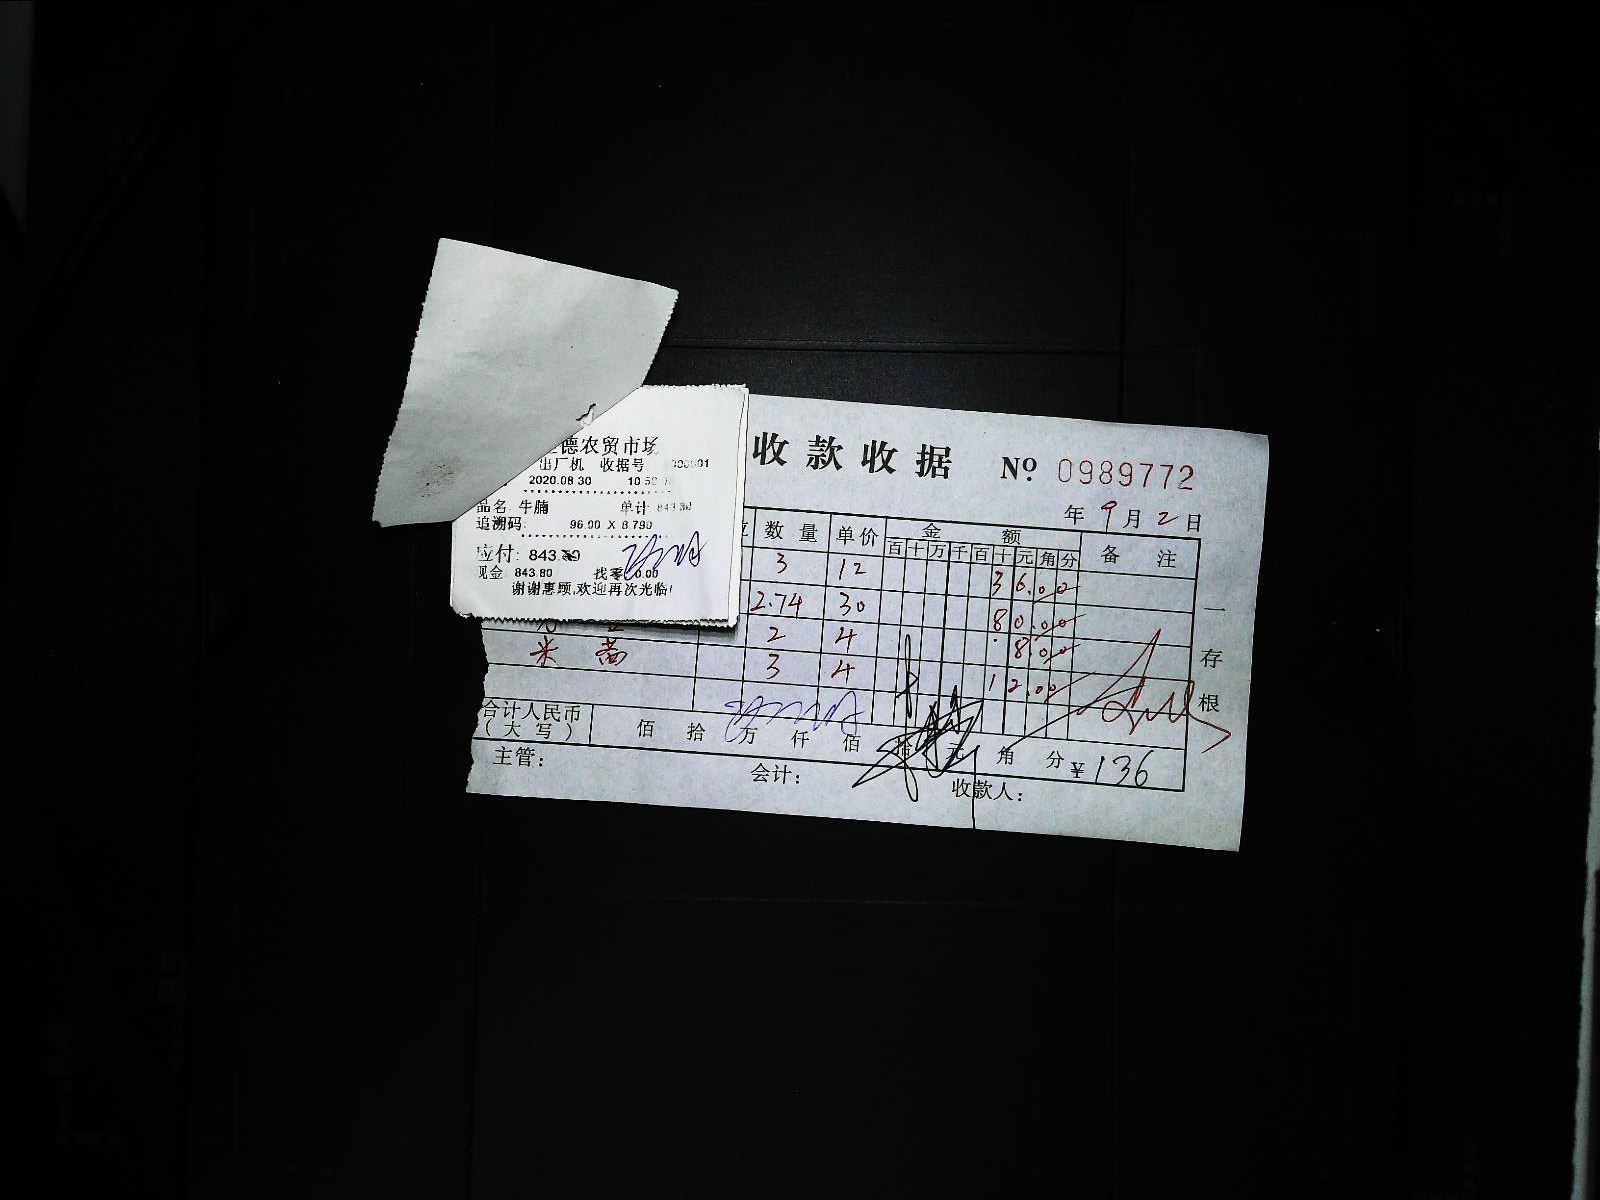 德农贸市场
出厂机 收据号
2020.08.30 10:50
品名 牛腩 单计 843.80
追溯码: 96.00 X 8.790
应付: 843.
现金: 843.80 找零 0.00
谢谢惠顾,欢迎再次光临!
收款收据 Nº 0989772
年 9 月 2 日
数量 单价 金额 备注
百 十 万 千 百 十 元 角 分
3 12 36.00
2.74 30 80.00
2 4 8.00
米 3 4 12.00
一存根
合计人民币
(大写) 佰 拾 万 仟 佰 拾 元 角 分 ¥136
主管: 会计: 收款人: